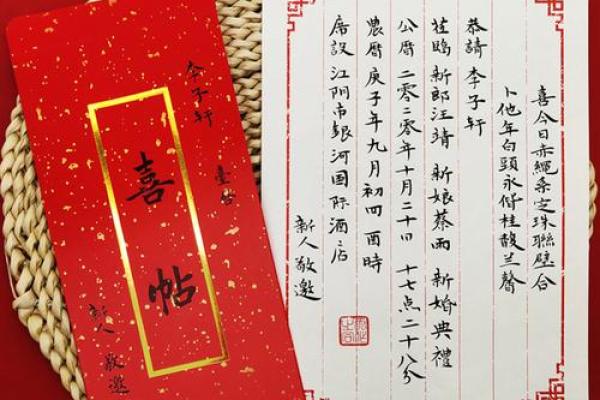 喜今日赤繩系定珠聯璧合
卜他年白頭永偕桂馥兰馨
恭請 李子轩
莅臨 新郎汪靖 新娘蔡雨 新婚典禮
公曆 二零二零年十月二十日 十七点二十八分
農曆 庚子年九月初四 酉時
席設 江阴市銀河国际酒店
新人敬邀
李子轩 臺启
喜帖
新人 敬邀